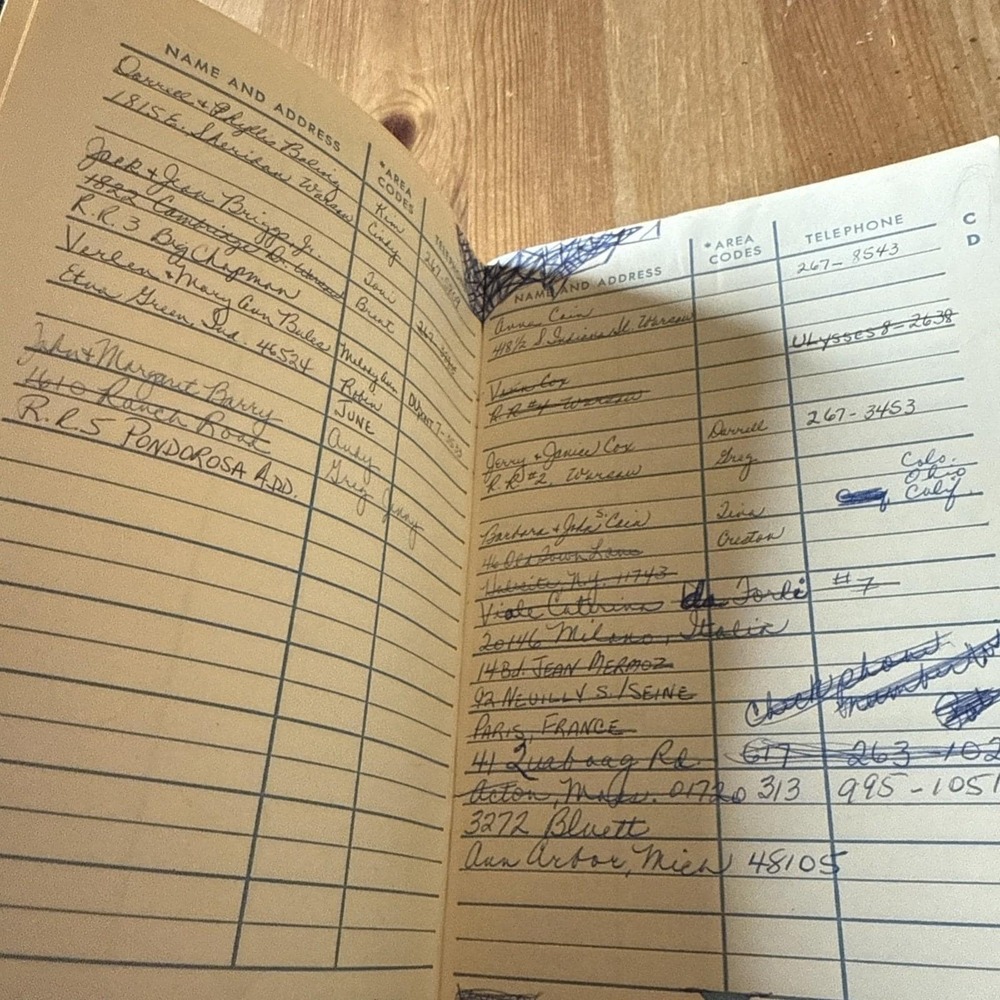 NAME AND ADDRESS
*AREA CODES
Darrell & Phyllis
1815 E. Sheridan Warsaw
Kim
Cindy
Jack & Jean Briggs Jr.
1822 Cambridge
R.R.3 Big Chapman
Toni
Brent
Verlen & Mary Ann Bules
Etna Green, Ind. 46524
Robin
John & Margaret Barry
1610 Ranch Road
R.R.5 PONDOROSA ADD.
JUNE
Andy
Greg Jenny
NAME AND ADDRESS
*AREA CODES
TELEPHONE
C
D
Anna Cain
418½ S Indiana St. Warsaw
267-8543
Vern Cox
R.R. #4 Warsaw
ULYSSES 8-2638
Jerry & Janice Cox
R.R #2, Warsaw
Darrell
Greg
267-3453
Colo.
Ohio
Calif.
Barbara & John S. Cain
46 Old Town Lane
Halesite, N.Y. 11743
Tina
Creston
Viale Caterina da Forli #7
20146 Milano, Italia
14 Bd. JEAN MERMOZ
92 NEUILLY S./SEINE
PARIS, FRANCE
Check phone number
41 Quaboag Rd 617 263 102
Acton, Mass. 01720 313 995-1051
3272 Bluett
Ann Arbor, Mich 48105